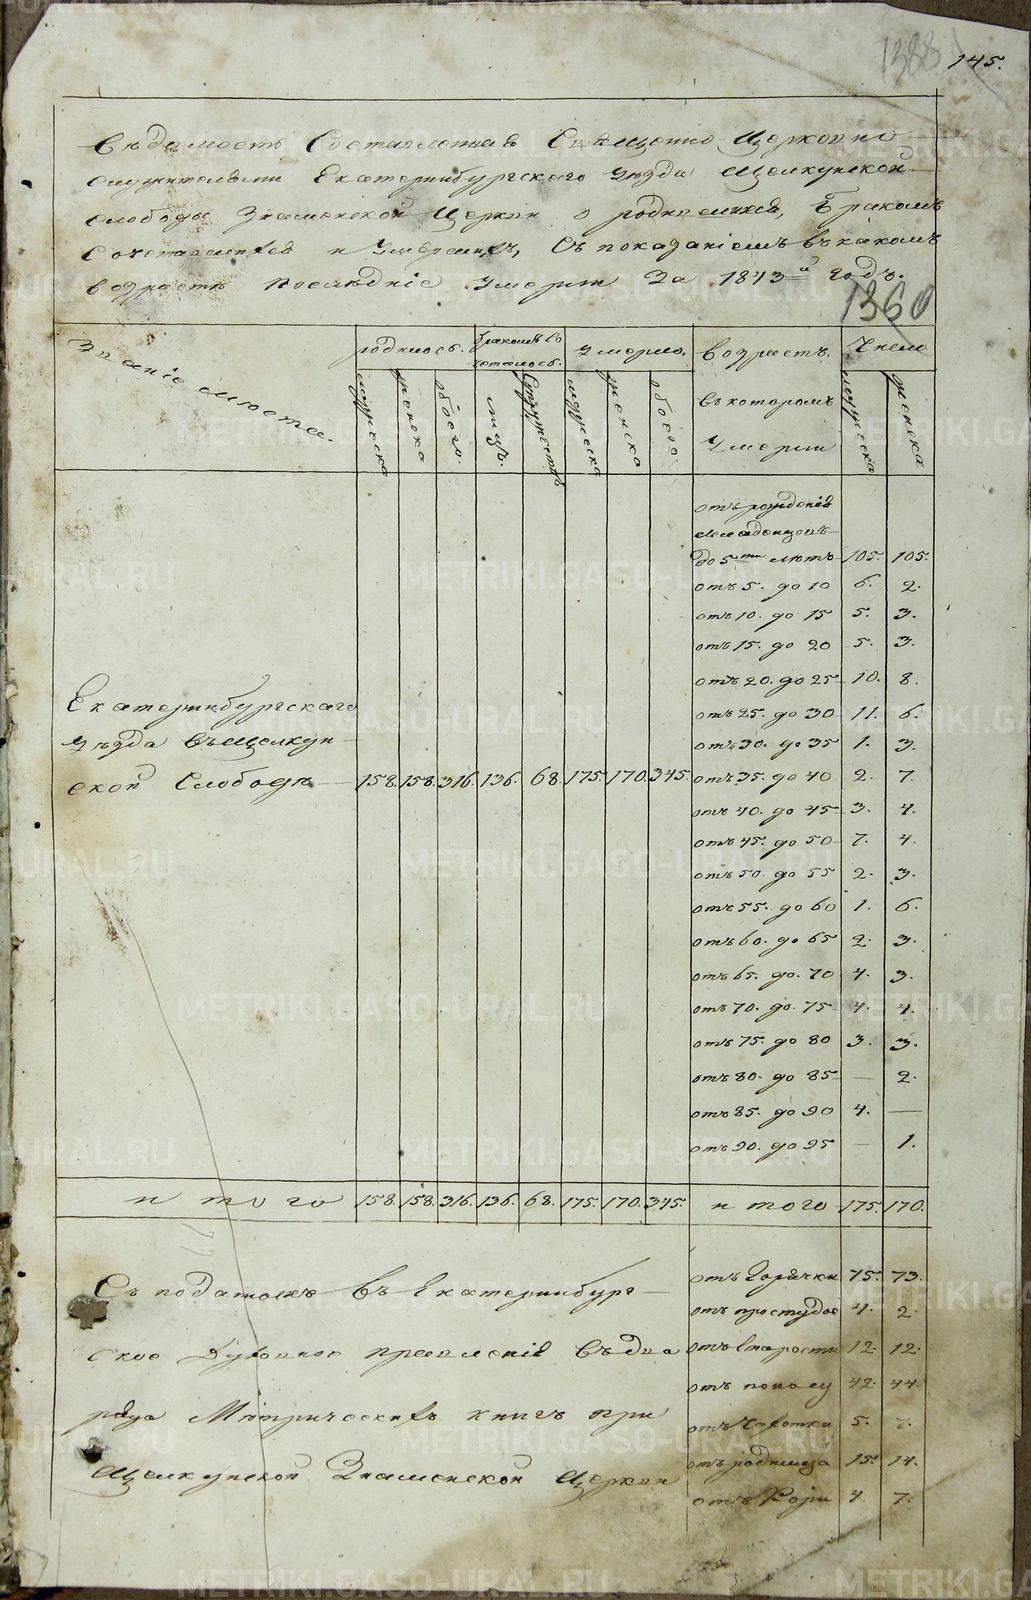 1388
145.
Вѣдомость Составленная Священно Церковно
служителями Екатеринбургскаго Уѣзда Щелкунской
слободы Знаменской Церкви о родившихся, Бракомъ
Сочетавшихся и Умершихъ, Съ показаніемъ въ какомъ
возрастѣ послѣдніе Умерли За 1843й годъ.
1360
Званіе мѣста. родилось. Бракомъ сочеталось. Умерло. Возрастъ Число
мужеска женска обоего. лицъ. Супружествъ мужеска женска обоего въ которомъ Умерли мужеска женска
отъ рожденія
младенцовъ
до 5ти лѣтъ 105. 105.
отъ 5. до 10 6. 2.
отъ 10. до 15 5. 3.
отъ 15. до 20 5. 3.
отъ 20. до 25 10. 8.
Екатеринбургскаго
отъ 25. до 30 11. 6.
Уѣзда въ Щелкун
отъ 30. до 35 1. 3.
ской Слободѣ 158. 158. 316. 136. 68. 175. 170. 345. отъ 35. до 40 2. 7.
отъ 40. до 45 3. 4.
отъ 45. до 50 7. 4.
отъ 50. до 55 2. 3.
отъ 55. до 60 1. 6.
отъ 60. до 65 2. 3.
отъ 65. до 70 4. 3.
отъ 70. до 75 4. 4.
отъ 75. до 80 3. 3.
отъ 80. до 85 — 2.
отъ 85. до 90 4. —
отъ 90. до 95 — 1.
итого 158. 158. 316. 136. 68. 175. 170. 345. итого 175. 170.
отъ Горячки 75. 73.
Съ податкѣ въ Екатеринбург
отъ простуды 4. 2.
ское Духовное правленіе
отъ Старости 12. 12.
отъ поносу 42. 44.
Метрическихъ книгъ при
отъ Чахотки 5.
Щелкунской Знаменской Церкви
отъ родимца 15. 14.
отъ Кори 4. 7.
METRIKI.GASO-URAL.RU